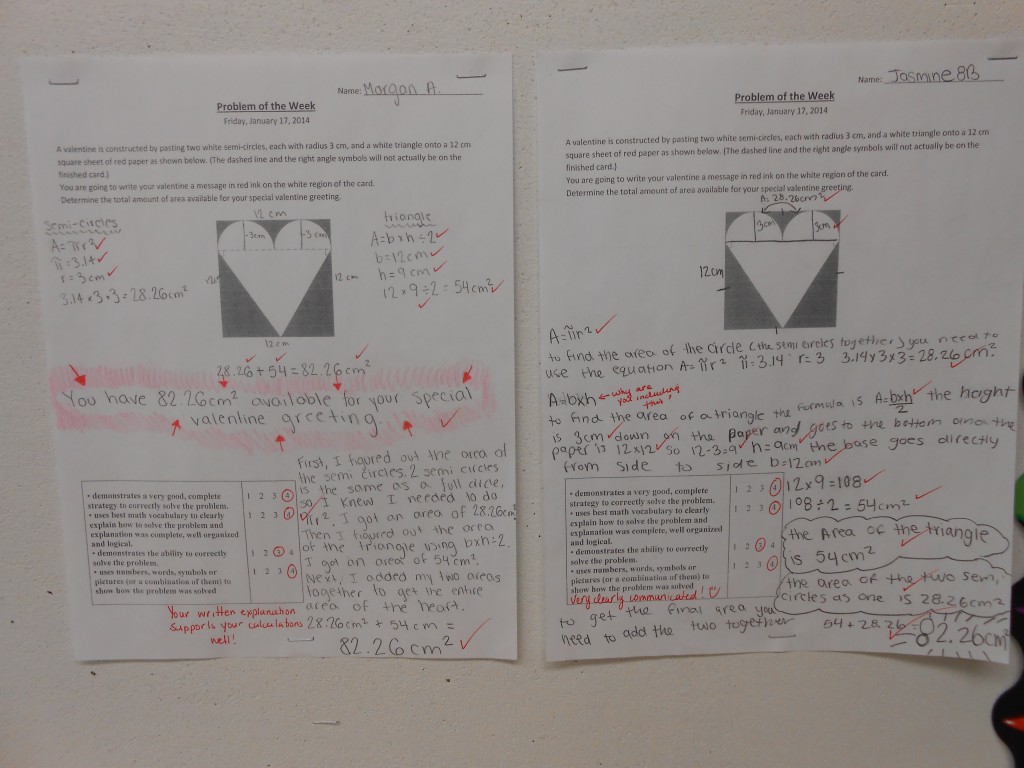 Name: Morgan A.
Problem of the Week
Friday, January 17, 2014
A valentine is constructed by pasting two white semi-circles, each with radius 3 cm, and a white triangle onto a 12 cm
square sheet of red paper as shown below. (The dashed line and the right angle symbols will not actually be on the
finished card.)
You are going to write your valentine a message in red ink on the white region of the card.
Determine the total amount of area available for your special valentine greeting.
Semi-circles
A=πr²
π=3.14
r=3cm
3.14×3×3=28.26cm²
12 cm
3cm
3cm
12 cm
12 cm
triangle
A=b×h÷2
b=12cm
h=9cm
12×9÷2=54cm²
28.26+54=82.26cm²
You have 82.26cm² available for your special
valentine greeting.
First, I figured out the area of
the semi circles. 2 semi circles
is the same as a full circle,
so I knew I needed to do
πr². I got an area of 28.26cm
Then I figured out the area
of the triangle using b×h÷2.
I got an area of 54cm².
Next, I added my two areas
together to get the entire
area of the heart.
28.26cm² + 54cm =
82.26cm²
• demonstrates a very good, complete
strategy to correctly solve the problem.
1 2 3 4
• uses best math vocabulary to clearly
explain how to solve the problem and
explanation was complete, well organized
and logical.
1 2 3 4
• demonstrates the ability to correctly
solve the problem.
1 2 3 4
• uses numbers, words, symbols or
pictures (or a combination of them) to
show how the problem was solved
1 2 3 4
Your written explanation
supports your calculations
well!
Name: Jasmine 8B
Problem of the Week
Friday, January 17, 2014
A valentine is constructed by pasting two white semi-circles, each with radius 3 cm, and a white triangle onto a 12 cm
square sheet of red paper as shown below. (The dashed line and the right angle symbols will not actually be on the
finished card.)
You are going to write your valentine a message in red ink on the white region of the card.
Determine the total amount of area available for your special valentine greeting.
A: 28.26cm²
3cm
3cm
12cm
A=πr²
to find the area of the circle (the semi circles together) you need to
use the equation A=πr² π=3.14 r=3 3.14×3×3=28.26cm²
A=bxh ← why are you including this?
to find the area of a triangle the formula is A=bxh/2 the height
is 3cm down on the paper and goes to the bottom and the
paper is 12x12 so 12-3=9 h=9cm the base goes directly
from side to side b=12cm
12×9=108
108÷2=54cm²
the Area of the triangle
is 54cm²
the area of the two semi
circles as one is 28.26cm²
• demonstrates a very good, complete
strategy to correctly solve the problem.
1 2 3 4
• uses best math vocabulary to clearly
explain how to solve the problem and
explanation was complete, well organized
and logical.
1 2 3 4
• demonstrates the ability to correctly
solve the problem.
1 2 3 4
• uses numbers, words, symbols or
pictures (or a combination of them) to
show how the problem was solved
1 2 3 4
Very clearly communicated!
to get the final area you
need to add the two together
54+28.26=82.26cm